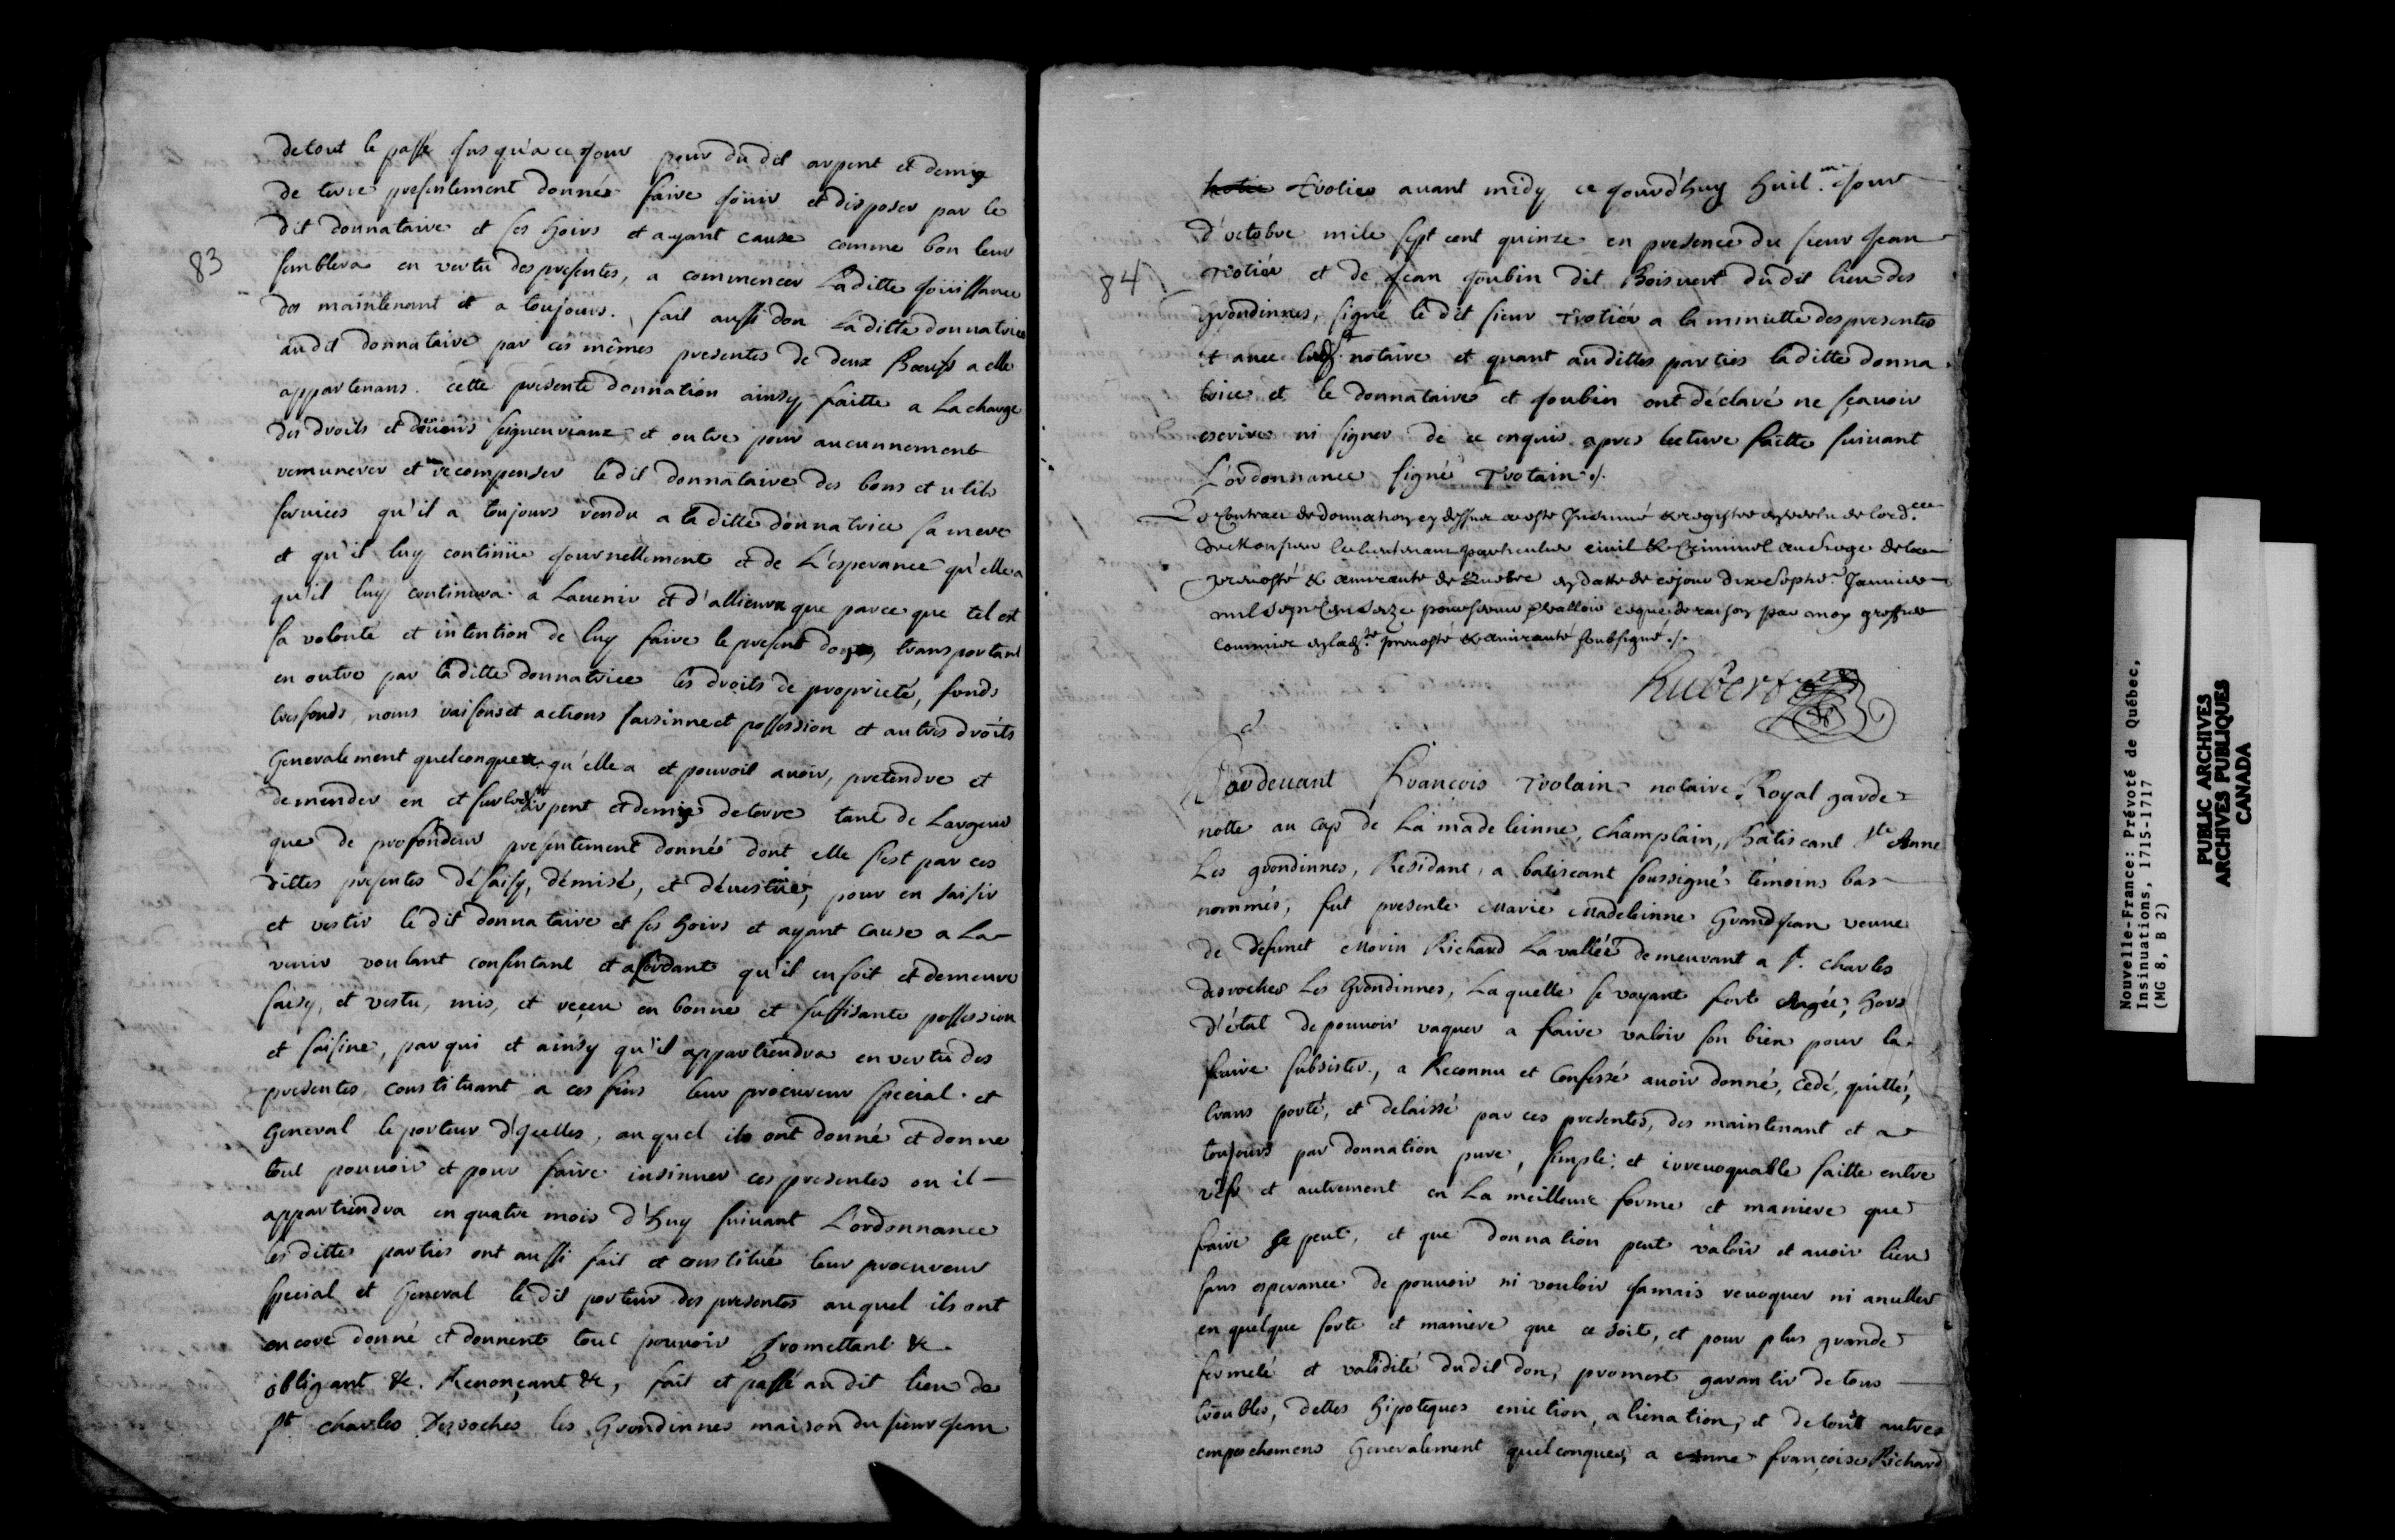 83
de tout le passé jusqu'a ce jour pour du dit arpent et demiy
de terre presentement donnée faire joüir et disposer par le
dit donnataire et ses hoirs et ayant cause comme bon leur
semblera en vertu des presentes, a commencer La ditte joüissance
des maintenant et a toujours. fait aussi don La ditte donnatrice
au dit donnataire par ces mêmes presentes de deux Bœufs a elle
appartenans. cette presente donnation ainsy faitte a La charge
des droits et devoirs seigneuriaux et outre pour aucunnement
remunerer et recompenser le dit donnataire des bons et utils
services qu'il a toujours rendu a la ditte donnatrice sa mere
et qu'il luy continüe journellement et de L'esperance qu'elle a
qu'il luy continura a Lavenir et d'allieurs que parce que tel est
sa volonté et intention de luy faire le present don, transportant
en outre par la ditte donnatrice les droits de proprieté, fonds
tresfonds, noms raisons et actions saisinne et possession et autres droits
Generalement quelconques qu'elle a et pouvoit avoir, pretendre et
demender en et sur led.t arpent et demiy de terre tant de Largeur
que de profondeur presentement donné dont elle s'est par ces
dittes presentes désaisy, démisé, et dévestüe, pour en saisir
et vestir le dit donnataire et ses hoirs et ayant cause a La-
venir voulant consentant et acordant qu'il en soit et demeure
saisy, et vestu, mis, et receu en bonne et suffisante possession
et saisine, par qui et ainsy qu'il appartiendra en vertu des
presentes, constituant a ces fins leur procureur special et
General le porteur d'jcelles, auquel ils ont donné et donne
tout pouvoir et pour faire insinuer ces presentes ou il
appartiendra en quatre mois d'huy suivant L'ordonnance
les dittes parties ont aussi fait et constitué leur procureur
special et General le dit porteur des presentes auquel ils ont
encore donné et donnent tout pouvoir promettant &c.
obligant &c. Renonçant &c, fait et passé au dit lieu de
St. charles Desroches les Grondinnes maison du sieur jean
84
trotier avant midy ce jourd'huy huit.me jour
d'octobre mile sept cent quinze en presence du sieur jean
Trotiér et de jean joubin dit Boisvert du dit lieu des
grondinnes, signé le dit sieur Trotiér a la minutte des presentes
et avec led.t notaire et quant au dittes parties la ditte donna
trice et le donnataire et joubin ont déclaré ne sçavoir
escrire ni signer de ce enquis apres lecture faitte suivant
L'ordonnance signé Trotain ./.
Le Contract de donnation cy dessus a esté Insinué & registré en vertu de lord.ce
de Monsieur le lieutenant particulier civil & Criminel au siege de la
prevosté & amirauté de Quebec en datte de ce jour dix sept.e Janvier
mil sept Cent Seize pour servir & valloir ce que de raison par moy greffier
commis en lad.te prevosté & amirauté soubsigné ./.
Rubert
Pardevant François Trotain notaire Royal garde
notte au cap de La madeleinne, Champlain, Batiscant Ste Anne
Les grondinnes, Residant a batiscant soussigné témoins bas
nommés, fut presente Marie Madeleinne Grandjean veuve
de defunct Morin Richard La vallée demeurant a St. charles
desroches Les Grondinnes, La quelle se voyant fort Agée, hors
d'état de pouvoir vaquer a faire valoir son bien pour la
faire subsister, a Reconnu et Confessé avoir donné, cédé, quitté,
transporté, et delaissé par ces presentes, des maintenant et a
toujours par donnation pure, simple et irrevoquable faitte entre
vifs et autrement en La meilleure forme et maniere que
faire se peut, et que donnation peut valoir et avoir lieu
sans esperance de pouvoir ni vouloir jamais revoquer ni anuller
en quelque sorte et maniere que ce soit, et pour plus grande
fermeté et validité dudit don, promest garantir de tous
troubles, dettes hipoteques eviction, alienation, et de tout autres
empechemens Generalement quelconques, a Anne françoise Richard
Nouvelle-France: Prévoté de Québec,
Insinuations, 1715-1717
(MG 8, B 2)
PUBLIC ARCHIVES
ARCHIVES PUBLIQUES
CANADA